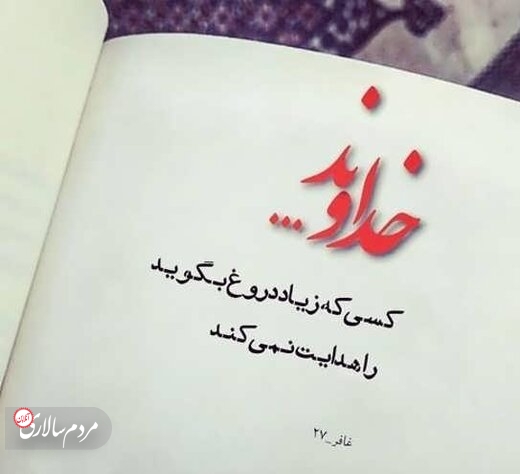 خداوند...
کسی که زیاد دروغ بگوید
را هدایت نمی کند
غافر_۲۷
مردم سالاری
آنلاین